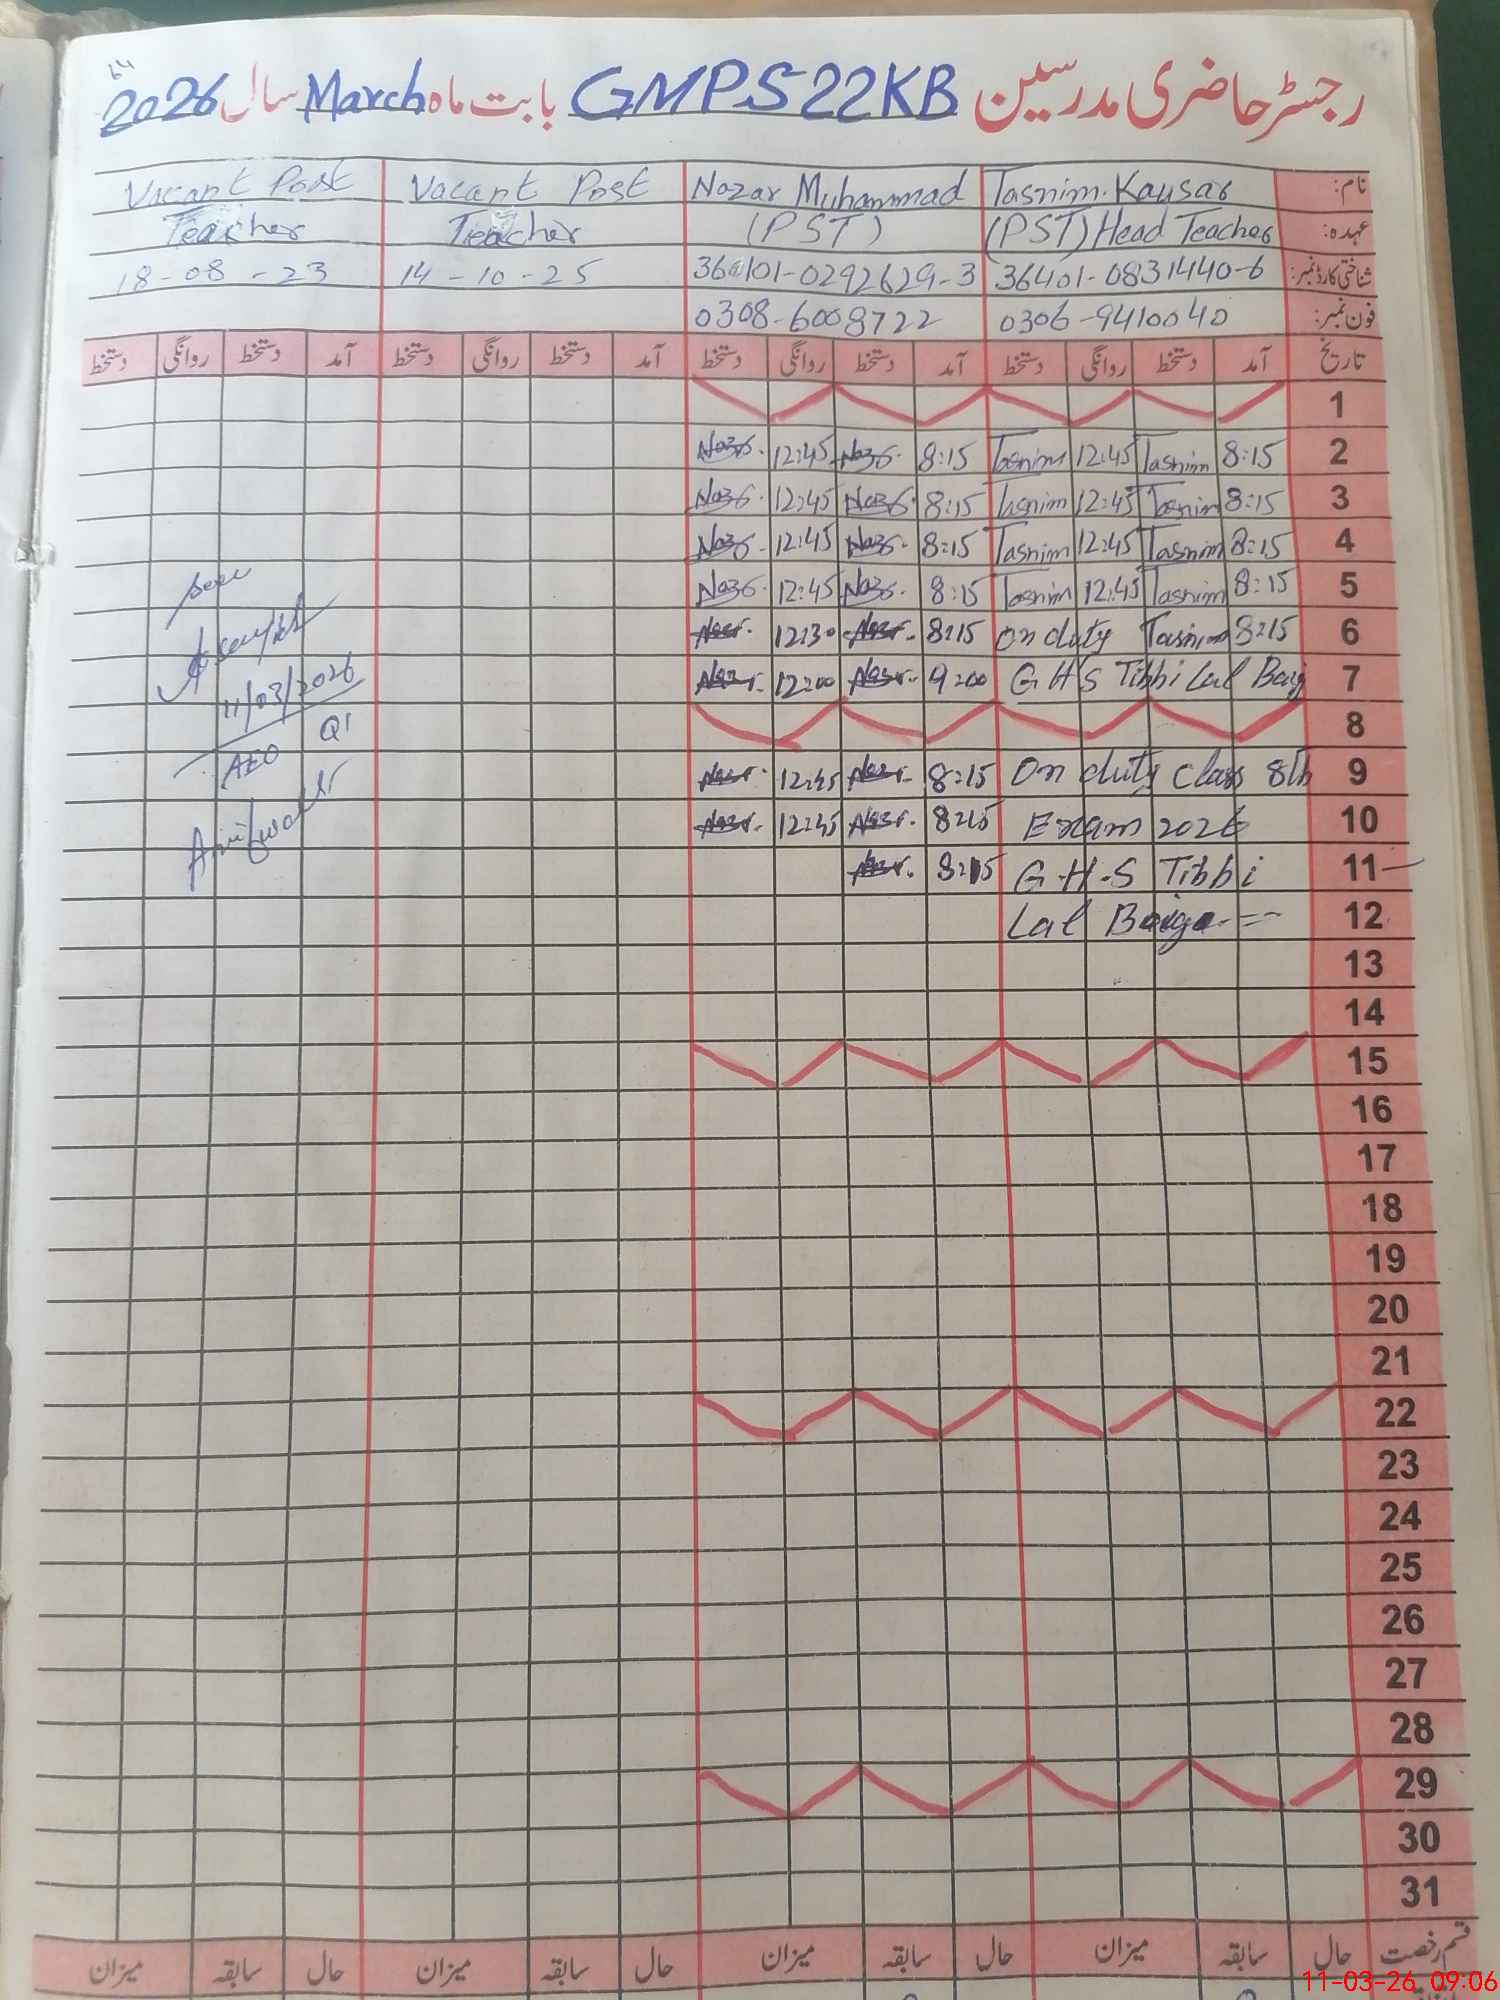 رجسٹر حاضری مدرسین GMPS 22KB بابت ماہ March سال 2026
نام: Tasnim Kaysar Nazar Muhammad Vacant Post Vacant Post
عہدہ: (PST) Head Teacher (PST) Teacher Teacher
شناختی کارڈ نمبر: 36401-0831440-6 360101-0292629-3 14-10-25 18-08-23
فون نمبر: 0306-9410040 0308-6008722
تاریخ آمد دستخط روانگی دستخط آمد دستخط روانگی دستخط آمد دستخط روانگی دستخط آمد دستخط روانگی دستخط
1
2 8:15 Tasnim 12:45 Tasnim 8:15 12:45
3 8:15 Tasnim 12:45 Tasnim 8:15 12:45
4 8:15 Tasnim 12:45 Tasnim 8:15 12:45
5 8:15 Tasnim 12:45 Tasnim 8:15 12:45
6 8:15 Tasnim On duty 8:15 12:30
7 GHS Tibbi Lal Baig 9:00 12:00
8
9 On duty class 8th 8:15 12:45
10 Exam 2026 8:15 12:45
11 G.H.S Tibbi 8:15
12 Lal Baiga
13
14
15
16
17
18
19
20
21
22
23
24
25
26
27
28
29
30
31
seen
11/03/2026
AEO
قسم رخصت حال سابقہ میزان حال سابقہ میزان حال سابقہ میزان حال سابقہ میزان
11-03-26 09:06